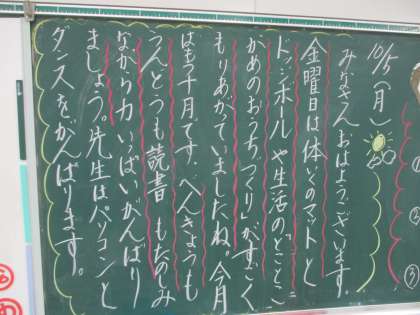 10/5(月)
みなさんおはようございます。
金曜日は体いくのマットと
ドッジボールや生活の「とことこ
がめのおうちづくり」がすごく
もりあがっていましたね。今月
はもう十月です。べんきょうも
うんどうも読書もたのしみ
ながら力いっぱいがんばり
ましょう。先生はパソコンと
ダンスをがんばります。
③